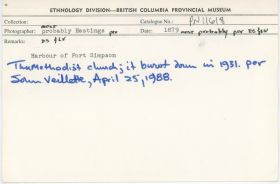 ETHNOLOGY DIVISION—BRITISH COLUMBIA PROVINCIAL MUSEUM
Collection: Catalogue No.: PN 11618
most
Photographer: probably Hastings per Date: 1879 most probably per DS & LV
Remarks: DS & LV
Harbour of Fort Simpson
The Methodist church; it burnt down in 1931. per
John Veillette, April 25, 1988.